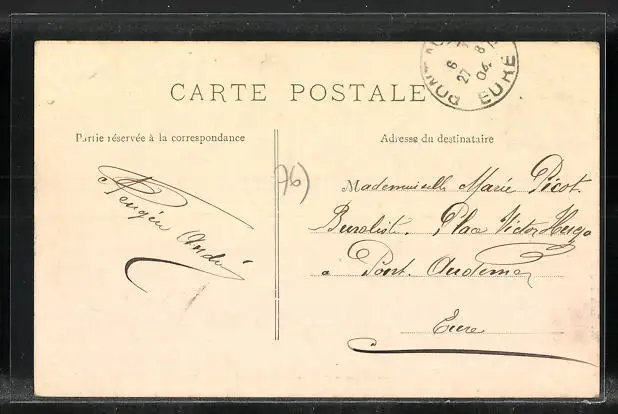 CARTE POSTALE
EURE
27 8 04
Partie réservée à la correspondance
Adresse du destinataire
76)
André
Mademoiselle Marie Picot
Buraliste. Place Victor Hugo
a Pont. Audemer
Eure